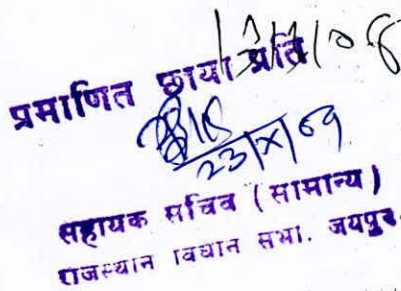 प्रमाणित छाया प्रति
23/X/09
सहायक सचिव (सामान्य)
राजस्थान विधान सभा. जयपुर.